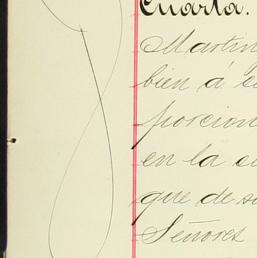 Cuarta.
Martin
bien á
porcion
en la
que de
Señores